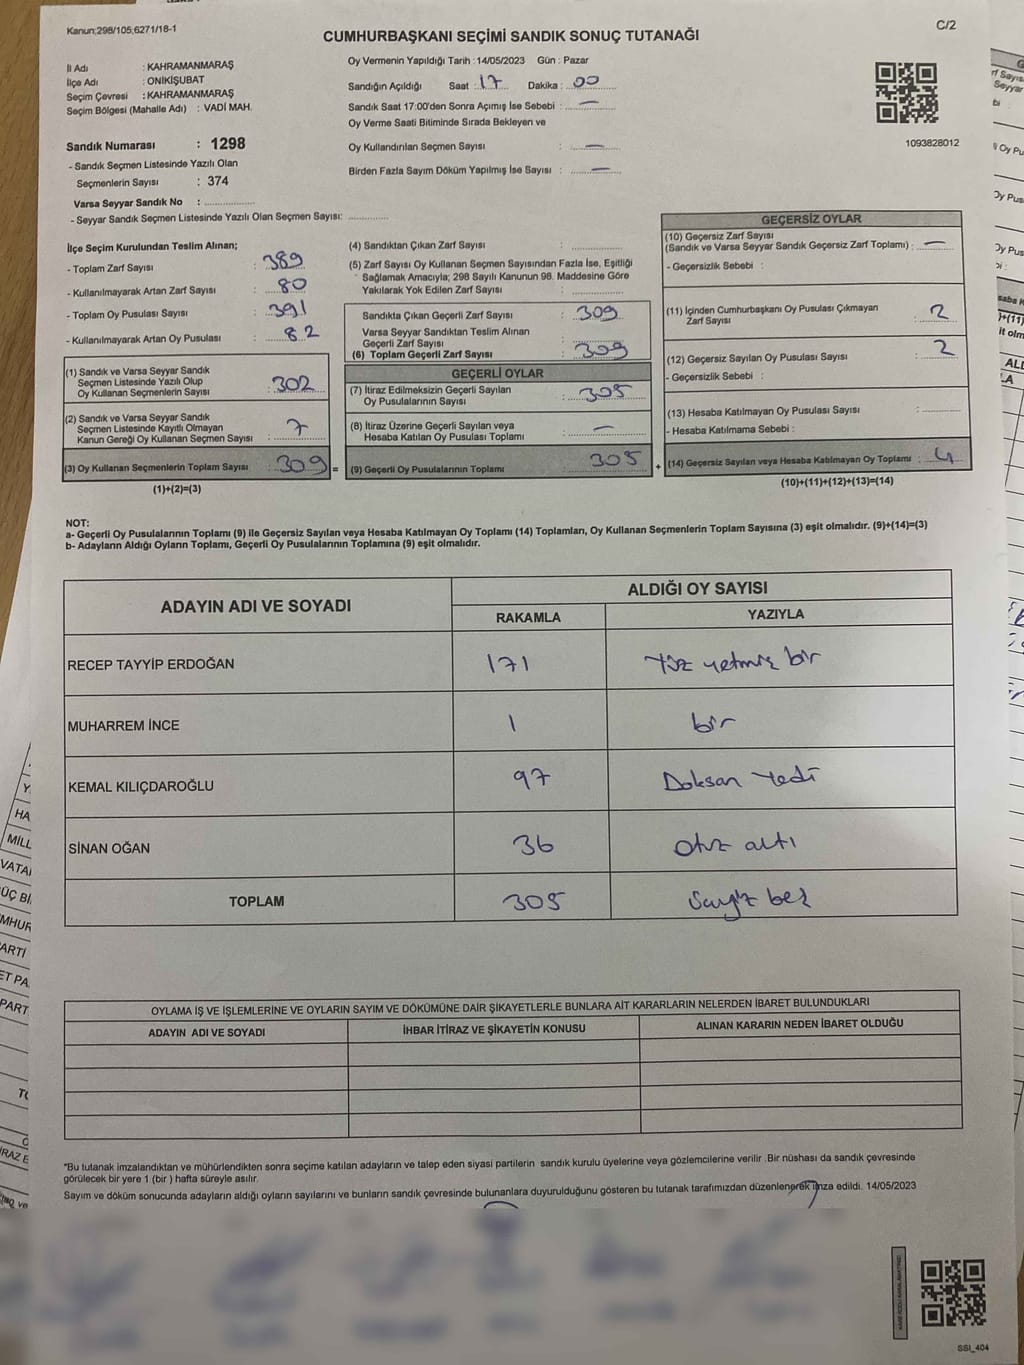 Kanun;298/105;6271/18-1
C/2
CUMHURBAŞKANI SEÇİMİ SANDIK SONUÇ TUTANAĞI
İl Adı : KAHRAMANMARAŞ
İlçe Adı : ONİKİŞUBAT
Seçim Çevresi : KAHRAMANMARAŞ
Seçim Bölgesi (Mahalle Adı) : VADİ MAH.
Sandık Numarası : 1298
- Sandık Seçmen Listesinde Yazılı Olan
Seçmenlerin Sayısı : 374
Varsa Seyyar Sandık No :
- Seyyar Sandık Seçmen Listesinde Yazılı Olan Seçmen Sayısı:
Oy Vermenin Yapıldığı Tarih : 14/05/2023 Gün : Pazar
Sandığın Açıldığı Saat : 17 Dakika : 00
Sandık Saat 17:00'den Sonra Açımış İse Sebebi : —
Oy Verme Saati Bitiminde Sırada Bekleyen ve
Oy Kullandırılan Seçmen Sayısı : —
Birden Fazla Sayım Döküm Yapılmış İse Sayısı : —
1093828012
İlçe Seçim Kurulundan Teslim Alınan;
- Toplam Zarf Sayısı : 389
- Kullanılmayarak Artan Zarf Sayısı : 80
- Toplam Oy Pusulası Sayısı : 391
- Kullanılmayarak Artan Oy Pusulası : 82
(1) Sandık ve Varsa Seyyar Sandık
Seçmen Listesinde Yazılı Olup
Oy Kullanan Seçmenlerin Sayısı : 302
(2) Sandık ve Varsa Seyyar Sandık
Seçmen Listesinde Kayıtlı Olmayan
Kanun Gereği Oy Kullanan Seçmen Sayısı : 7
(3) Oy Kullanan Seçmenlerin Toplam Sayısı : 309 =
(1)+(2)=(3)
(4) Sandıktan Çıkan Zarf Sayısı :
(5) Zarf Sayısı Oy Kullanan Seçmen Sayısından Fazla İse, Eşitliği
Sağlamak Amacıyla; 298 Sayılı Kanunun 98. Maddesine Göre
Yakılarak Yok Edilen Zarf Sayısı :
Sandıkta Çıkan Geçerli Zarf Sayısı : 309
Varsa Seyyar Sandıktan Teslim Alınan
Geçerli Zarf Sayısı :
(6) Toplam Geçerli Zarf Sayısı : 309
GEÇERLİ OYLAR
(7) İtiraz Edilmeksizin Geçerli Sayılan
Oy Pusulalarının Sayısı : 305
(8) İtiraz Üzerine Geçerli Sayılan veya
Hesaba Katılan Oy Pusulası Toplamı : —
(9) Geçerli Oy Pusulalarının Toplamı : 305 +
GEÇERSİZ OYLAR
(10) Geçersiz Zarf Sayısı
(Sandık ve Varsa Seyyar Sandık Geçersiz Zarf Toplamı) : —
- Geçersizlik Sebebi :
(11) İçinden Cumhurbaşkanı Oy Pusulası Çıkmayan
Zarf Sayısı : 2
(12) Geçersiz Sayılan Oy Pusulası Sayısı : 2
- Geçersizlik Sebebi :
(13) Hesaba Katılmayan Oy Pusulası Sayısı :
- Hesaba Katılmama Sebebi :
(14) Geçersiz Sayılan veya Hesaba Katılmayan Oy Toplamı : 4
(10)+(11)+(12)+(13)=(14)
NOT:
a- Geçerli Oy Pusulalarının Toplamı (9) ile Geçersiz Sayılan veya Hesaba Katılmayan Oy Toplamı (14) Toplamları, Oy Kullanan Seçmenlerin Toplam Sayısına (3) eşit olmalıdır. (9)+(14)=(3)
b- Adayların Aldığı Oyların Toplamı, Geçerli Oy Pusulalarının Toplamına (9) eşit olmalıdır.
ADAYIN ADI VE SOYADI
ALDIĞI OY SAYISI
RAKAMLA YAZIYLA
RECEP TAYYİP ERDOĞAN 171 Yüz yetmiş bir
MUHARREM İNCE 1 bir
KEMAL KILIÇDAROĞLU 97 Doksan Yedi
SİNAN OĞAN 36 Otuz altı
TOPLAM 305
OYLAMA İŞ VE İŞLEMLERİNE VE OYLARIN SAYIM VE DÖKÜMÜNE DAİR ŞİKAYETLERLE BUNLARA AİT KARARLARIN NELERDEN İBARET BULUNDUKLARI
ADAYIN ADI VE SOYADI İHBAR İTİRAZ VE ŞİKAYETİN KONUSU ALINAN KARARIN NEDEN İBARET OLDUĞU
*Bu tutanak imzalandıktan ve mühürlendikten sonra seçime katılan adayların ve talep eden siyasi partilerin sandık kurulu üyelerine veya gözlemcilerine verilir .Bir nüshası da sandık çevresinde
görülecek bir yere 1 (bir ) hafta süreyle asılır.
Sayım ve döküm sonucunda adayların aldığı oyların sayılarını ve bunların sandık çevresinde bulunanlara duyurulduğunu gösteren bu tutanak tarafımızdan düzenlenerek imza edildi. 14/05/2023
SSI_404